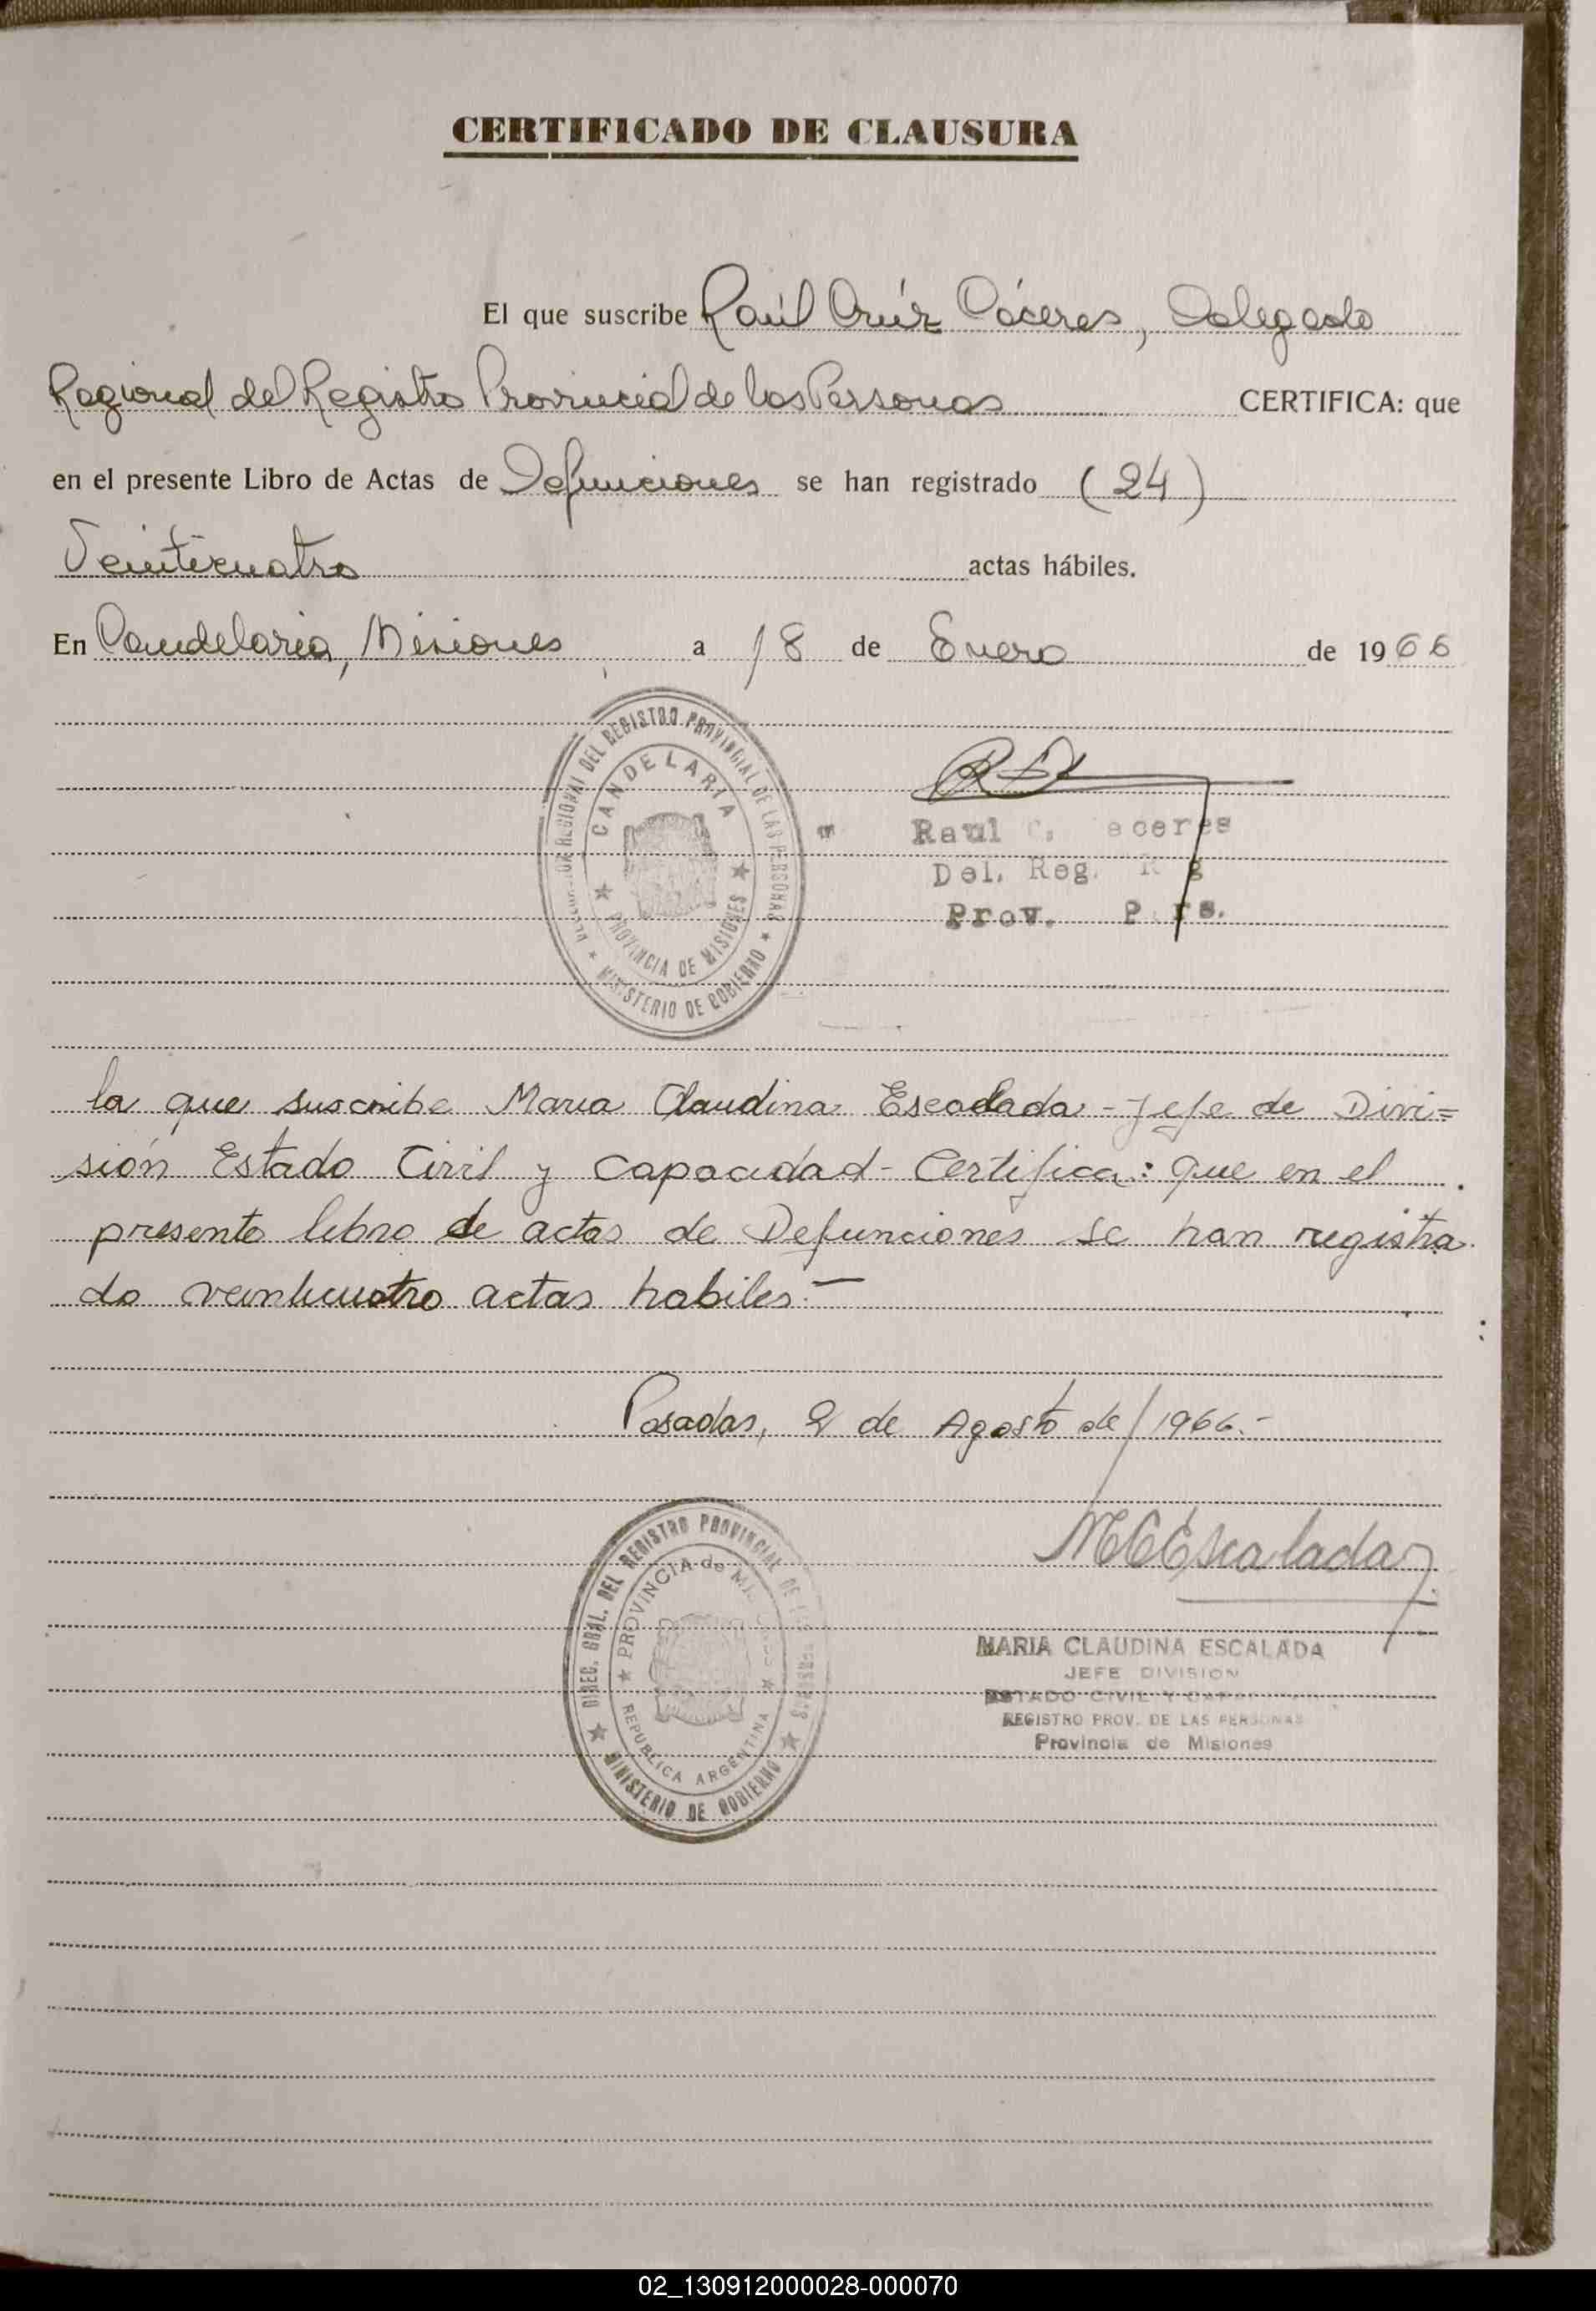 CERTIFICADO DE CLAUSURA
El que suscribe Raúl Crúz Cáceres, Delegado
Regional del Registro Provincial de las Personas CERTIFICA: que
en el presente Libro de Actas de Defunciones se han registrado (24)
Veinticuatro actas hábiles.
En Candelaria, Misiones a 18 de Enero de 1966
REGIONAL DEL REGISTRO PROVINCIAL DE LAS PERSONAS
CANDELARIA
PROVINCIA DE MISIONES
MINISTERIO DE GOBIERNO
Raul C. aceres
Del. Reg. R g
Prov. P rs.
la que suscribe Maria Claudina Escalada - Jefe de Divi=
sión Estado Civil y Capacidad - Certifica: que en el
presente libro de actas de Defunciones se han registra
do veinticuatro actas habiles.-
Posadas, 2 de Agosto de 1966.-
MCEscalada
DIREC. GRAL. DEL REGISTRO PROVINCIAL DE LAS PERSONAS
PROVINCIA de MISIONES
REPUBLICA ARGENTINA
MINISTERIO DE GOBIERNO
MARIA CLAUDINA ESCALADA
JEFE DIVISION
ESTADO CIVIL Y
REGISTRO PROV. DE LAS PERSONAS
Provincia de Misiones
02_130912000028-000070